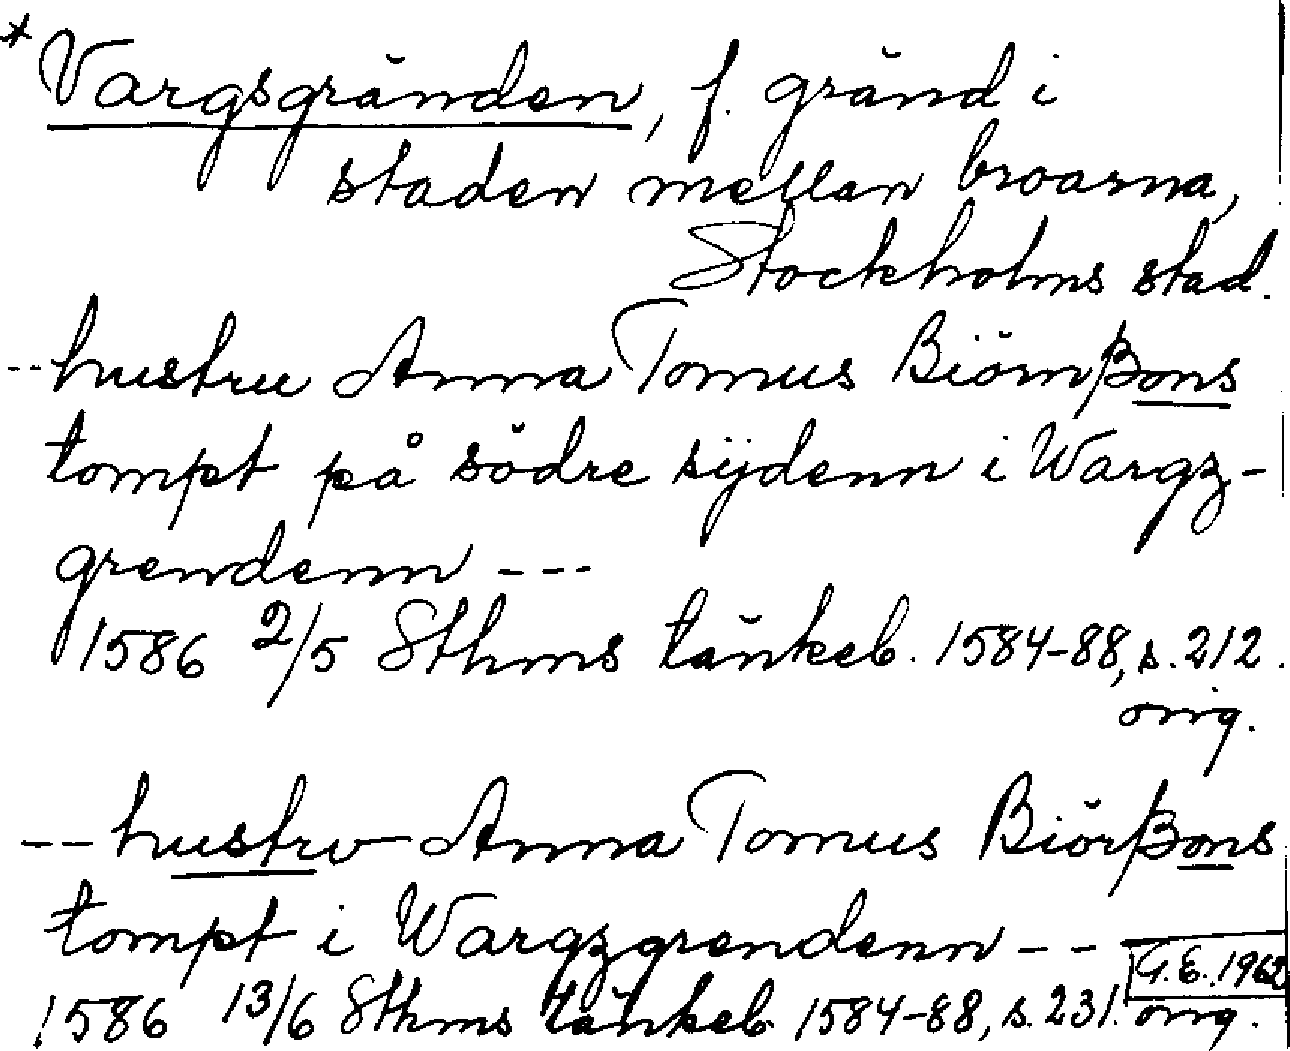 * Vargsgränden, f. gränd i
staden mellan broarna,
Stockholms stad.
-- hustru Anna Tomus Biörnßons
tompt på södre sijdenn i Wargz-
grendenn ---
1586 2/5 Sthms tänkeb. 1584-88, s. 212.
orig.
-- hustrv Anna Tomus Biörßons
tompt i Wargzgrendenn --
G.E. 1962
1586 13/6 Sthms tänkeb. 1584-88, s. 231. orig.